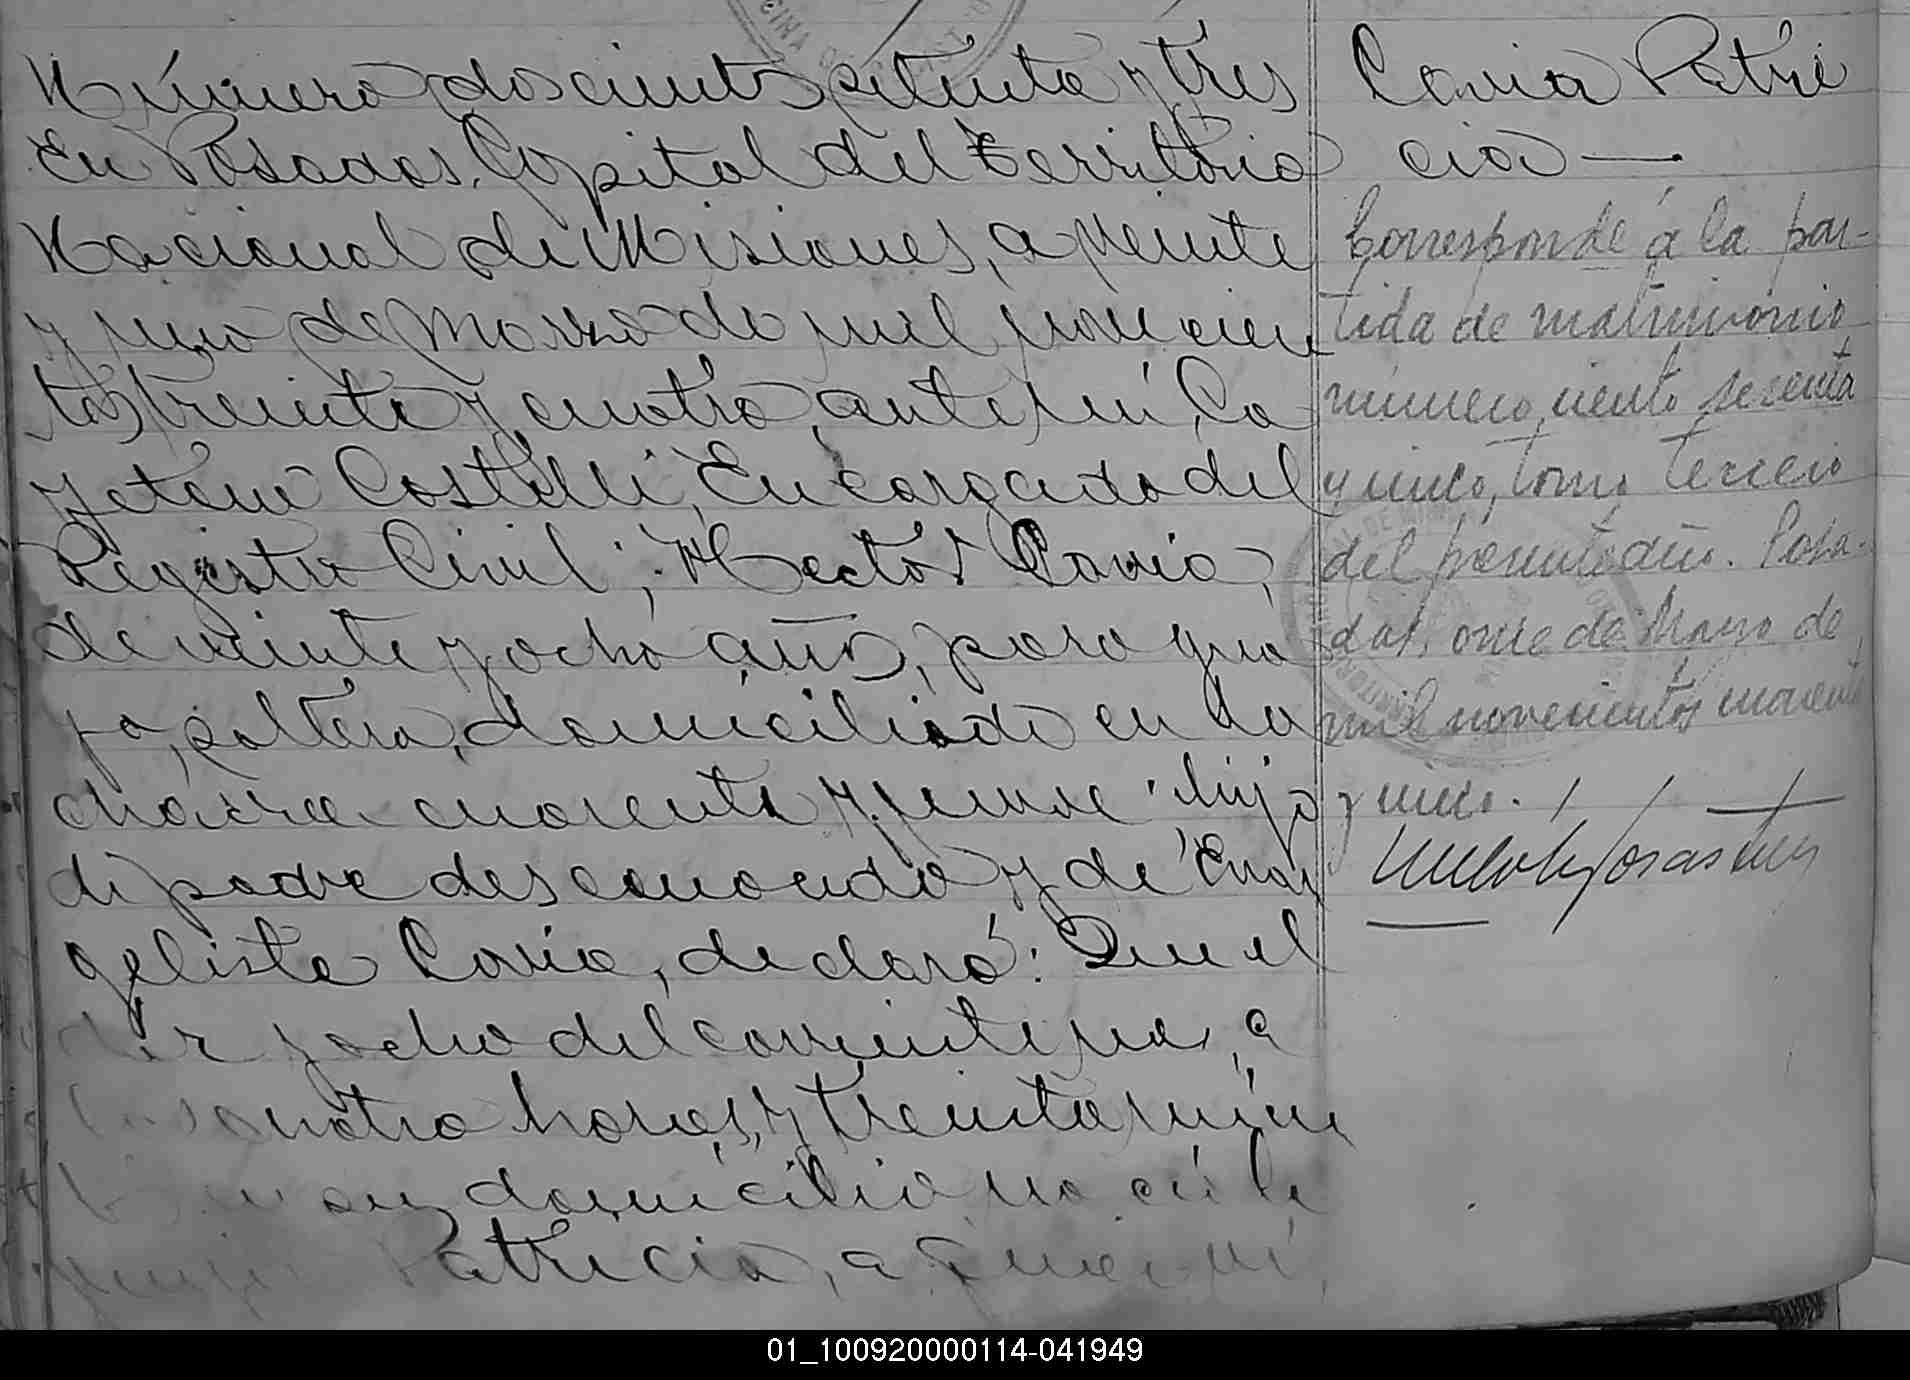 Número doscientos setenta y tres
En Posadas, Capital del Territorio
Nacional de Misiones, a veinte
y uno de Marzo de mil novecien
tos treinta y cuatro, ante mí, Ca
yetano Castelli, Encargado del
Registro Civil; Hector Cavia,
de veinte y ocho años, para gua
yo, soltero, domiciliado en la
chacra cuarenta y nueve: hijo
de padre desconocido y de Evan
gelista Cavia, declaró: Que el
diez y ocho del corriente mes, a
las cuatro horas y treinta minu
tos en su domicilio nació la
mujer Patricia, a quien
Cavia Patri
cia —
Corresponde á la par-
tida de matrimonio
número ciento sesenta
y cinco, tomo tercero
del presente año. Posa-
das, once de Mayo de
mil novecientos cuarenta
y cinco.
OFICINA DE
01_100920000114-041949